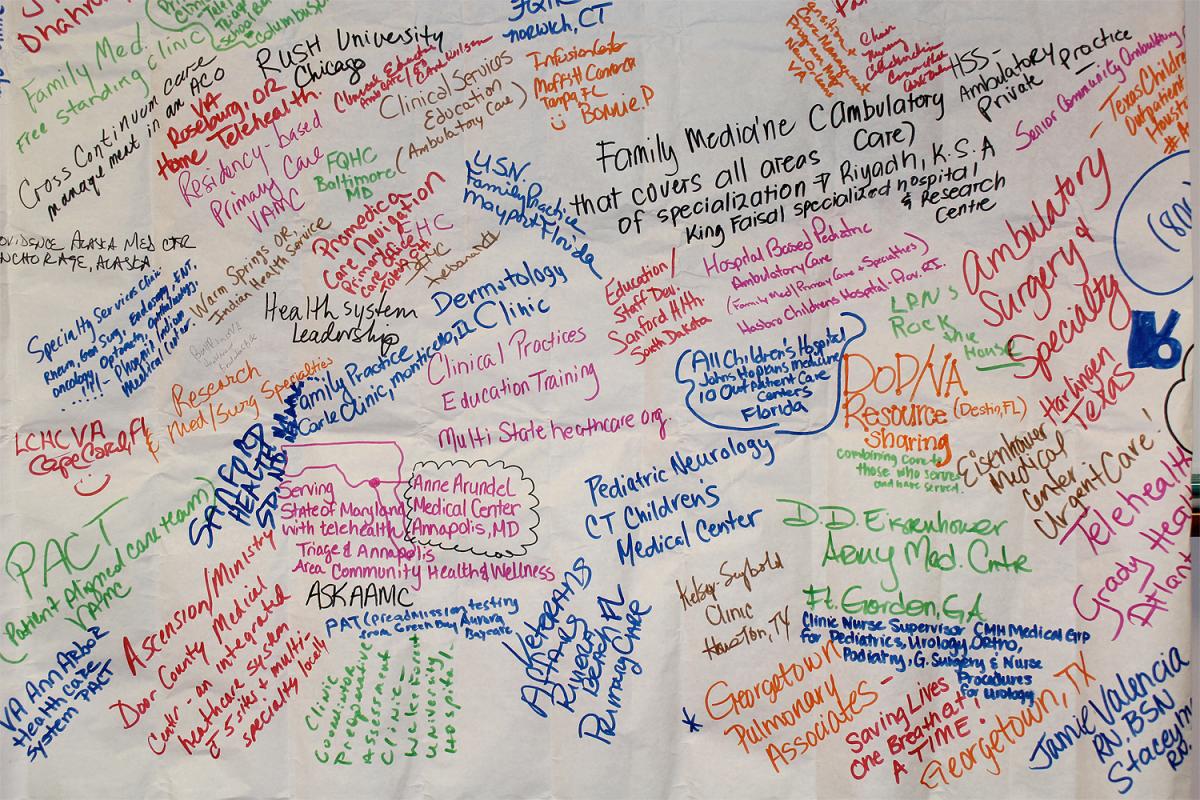 Dhahran
Family Med.
Free Standing clinic
Columbus
Cross Continuum care
management in an ACO
RUSH University
Chicago
VA
Roseburg, OR
Home Telehealth
Residency-based
Primary Care
VAMC
FQHC
Baltimore
MD
Clinical Services
Education
(Ambulatory Care)
Norwich, CT
Infusion Center
Moffitt Cancer
Tampa, FL
Bonnie D
U.S.N.
Family Practice
Mayport Florida
Promedica
Care Navigation
Primary Care
Toledo OH
Family Medicine (Ambulatory
Care)
that covers all areas
of specialization → Riyadh, K.S.A
King Faisal specialized hospital
& Research
Centre
HSS-
Ambulatory practice
Private
Senior Community Ambulatory
- Texas Children
Outpatient
Houston
OVIDENCE ALASKA MED CTR
NCHORAGE, ALASKA
Warm Springs OR.
Indian Health Service
Specialty Services Clinic
Rheum, Gen Surg, Endoscopy, ENT,
oncology, Optometry, Opthalmology,
.....!!!! - Phoenix Indian
Medical Center.
Health system
Leadership
Dermatology
Clinic
Education/
Staff Dev.
Sanford Hlth.
South Dakota
Hospital Based Pediatric
Ambulatory Care
(Family Med/Primary Care & Specialties)
Hasbro Childrens Hospital - Prov. RI.
LPN's
Rock
the
House
Ambulatory
Surgery &
Specialty
Harlingen
Texas
(All Children's Hospital
Johns Hopkins medicine
10 Outpatient Care
Centers
Florida
DoD/VA
Resource (Destin, FL)
Sharing
combining care to
those who serve
and have served.
Research
& Med/Surg Specialties
Family Practice
Carle Clinic, Monticello, IL
Clinical Practices
Education Training
Multi State healthcare org.
LCHCVA
Cape Coral, FL
SANFORD
HEALTH
SD, ND,
Serving
State of Maryland
with telehealth
Triage & Annapolis
Area Community Health & Wellness
Anne Arundel
Medical Center
Annapolis, MD
ASKAAMC
Pediatric Neurology
CT Children's
Medical Center
Eisenhower
Medical
Center
Urgent Care!
Telehealth
Grady Heal
Atlant
D.D. Eisenhower
Army Med. Cntr
Ft. Gordon, GA
PACT
(Patient Aligned care team)
VAMC
VA Ann Arbor
Healthcare
System PACT
Ascension/Ministry
Door County Medical
Center - an integrated
healthcare system
5 sites & multi-
specialty locally
PAT (preadmission testing
from Green Bay Aurora
Baycare)
Clinic
Coordinator
Preoperative
Assessment
Clinic -
Wake Forest
University
Hospital
VETERANS
Riviera
Beach FL
Primary CARE
Kelsey-Seybold
Clinic
Houston, TX
Clinic Nurse Supervisor CMH Medical Grp
for Pediatrics, Urology, Ortho,
Podiatry, G. Surgery & Nurse
Procedures
for Urology
* Georgetown
Pulmonary
Associates -
Saving Lives
One Breath at
A TIME!
Georgetown, TX
Jamie Valencia
RN. BSN
Stacey
RN.